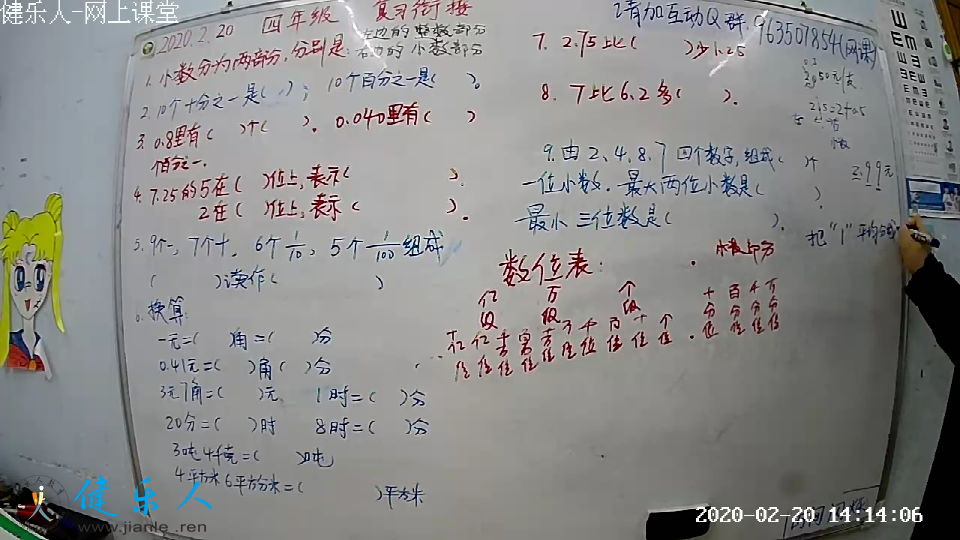 健乐人-网上课堂
2020.2.20 四年级 复习衔接
请加互动Q群 963501854(网课)
1.小数分为两部分,分别是
左边的 整数部分
右边的 小数部分
2.10个十分之一是( ); 10个百分之一是( )。
3.0.8里有( )个( )。0.040里有( )
佰分之一。
4.7.25的5在( )位上,表示( )。
2在( )位上,表示( )。
5.9个一,7个十,6个1/10,5个1/100组成
( )读作( )
6.换算:
一元=( )角=( )分
0.41元=( )角( )分
3元7角=( )元 1时=( )分
20分=( )时 8时=( )分
3吨4千克=( )吨
4平方米6平方分米=( )平方米
7. 2.75比( )少1.25
8. 7比6.2多( )。
9.由2、4、8、7四个数字,组成( )个
一位小数。最大两位小数是( )。
最小三位数是( )。
2.99元
把"1"平均
数位表:
小数部分
亿级 万级 个级
十亿位 亿位 千万位 百万位 十万位 万位 千位 百位 十位 个位 . 十分位 百分位 千分位 万分位
健乐人
www.jianle.ren
2020-02-20 14:14:06